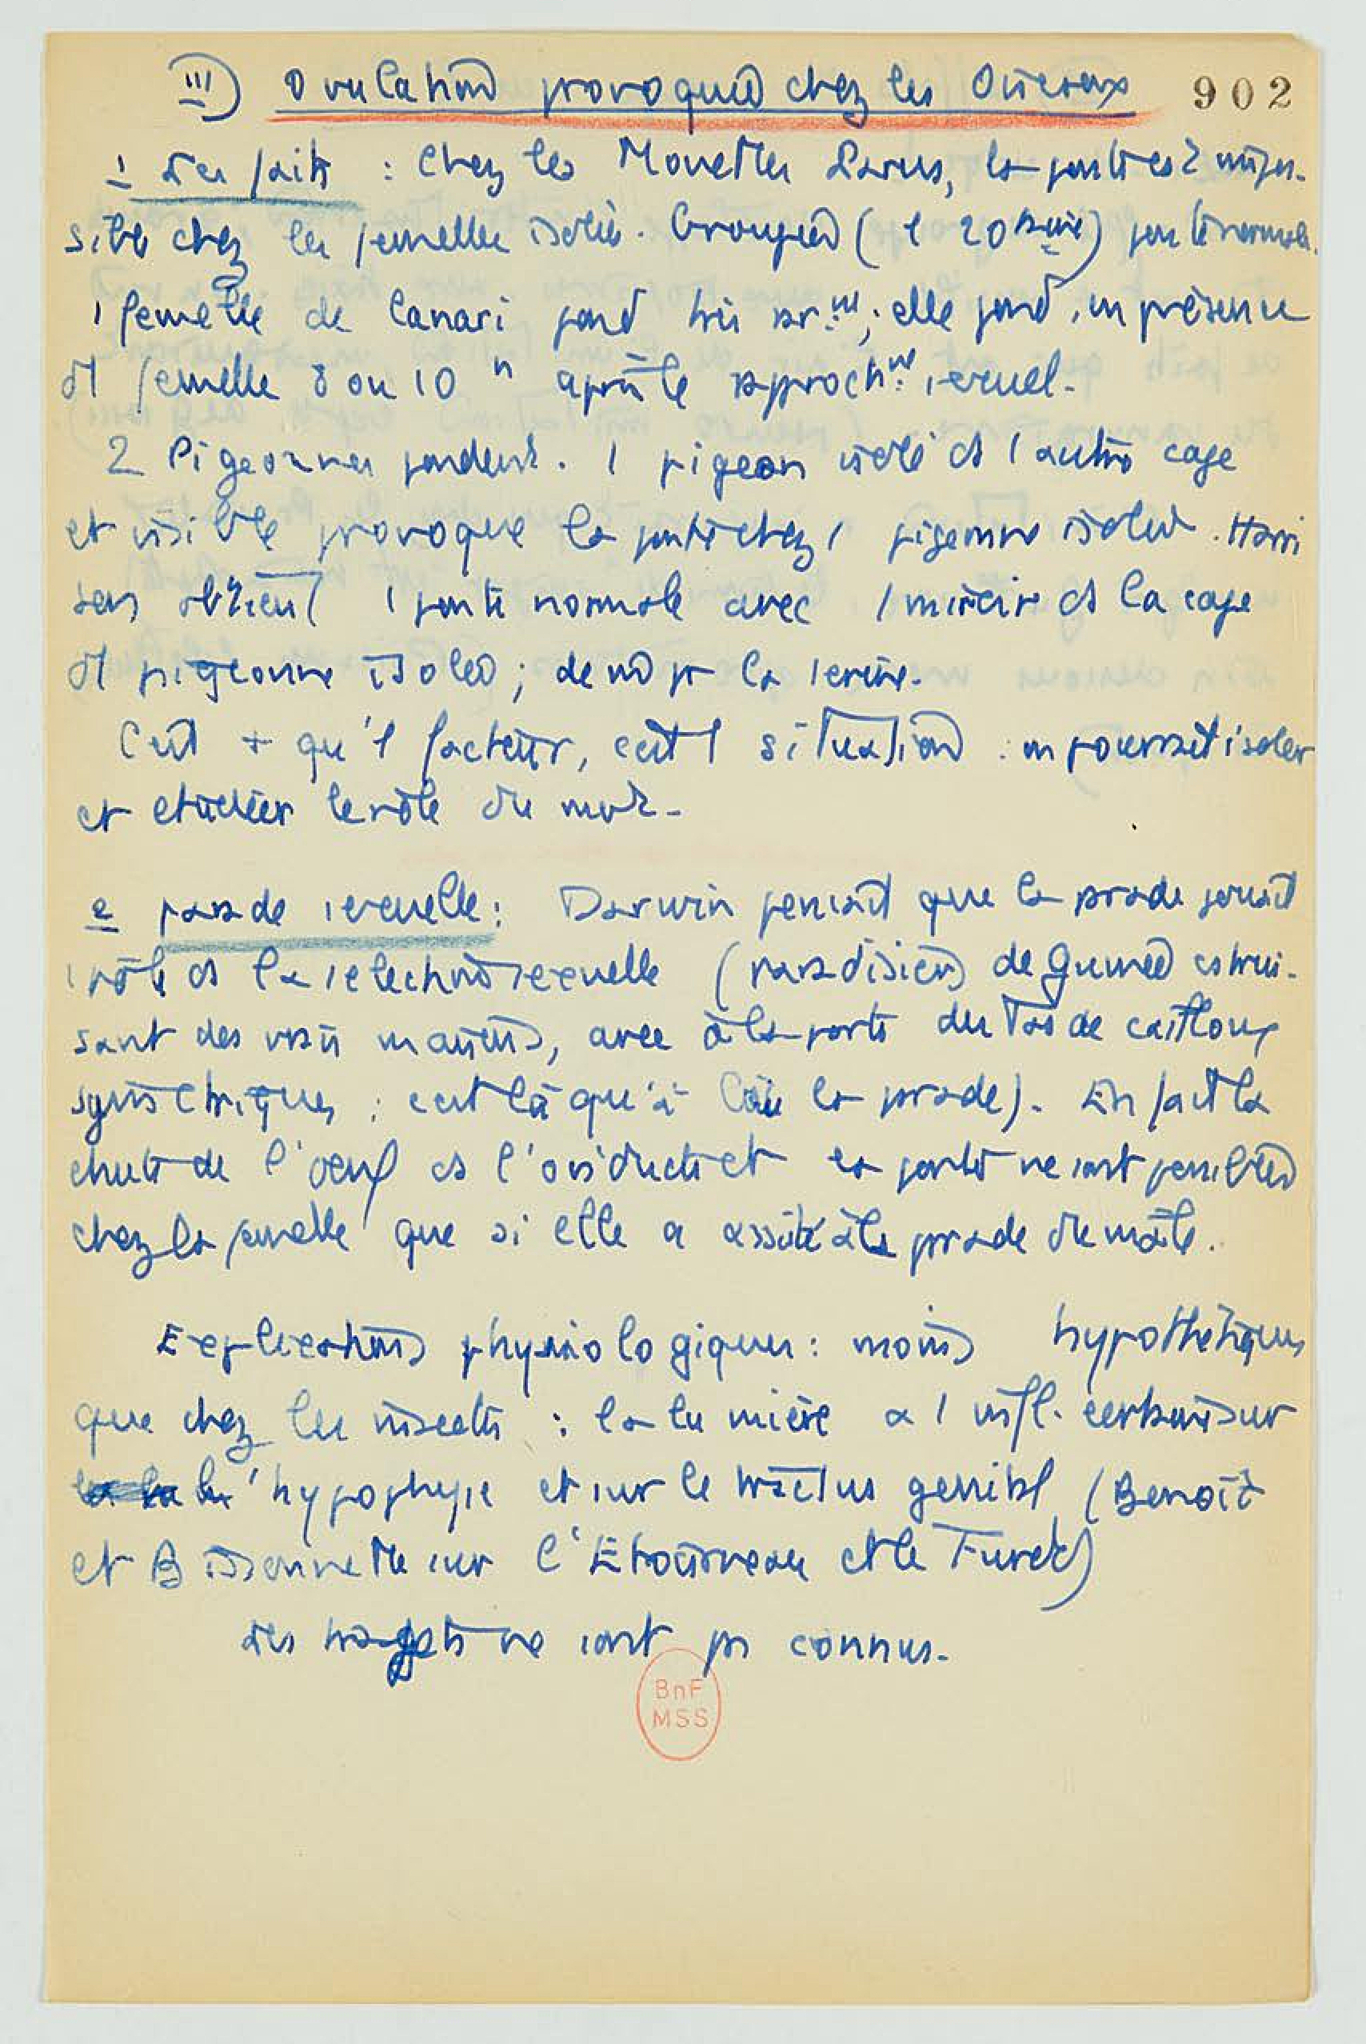 III) Ovulation provoquée chez les Oiseaux 902
1 Les faits : Chez les Mouettes Larus, la ponte est impos-
sible chez les femelles isolées. Groupées (1 20taine) ponte normale.
1 femelle de Canari pond très rr.nt ; elle pond en présence
d1 femelle 8 ou 10 h après le rapproch.nt sexuel.
2 Pigeonnes pondent. 1 pigeon isolé ds 1 autre cage
et visible provoque la ponte chez 1 pigeonne isolée. Harri
son obtient 1 ponte normale avec 1 miroir ds la cage
d1 pigeonne isolée ; de m pr la serine.
C'est + qu'1 facteur, c'est 1 situation : on pourrait isoler
et étudier le rôle du mot.
2 parade sexuelle : Darwin pensait que la parade jouait
1 rôle ds la sélection sexuelle (paradisiers de Guinée cstrui-
sant des vrais maisons, avec à la porte des tas de cailloux
symétriques ; c'est là qu'a lieu la parade). En fait la
chute de l'oeuf ds l'oviducte et la ponte ne sont possibles
chez la femelle que si elle a assisté à la parade du mâle.
Explications physiologiques : moins hypothétiques
que chez les insectes : la lumière a 1 infl. certaine sur
l'hypophyse et sur le tractus génital (Benoît
et Bissonnette sur l'Etourneau et le Furet)
Les trajets ne sont ps connus.
BnF
MSS